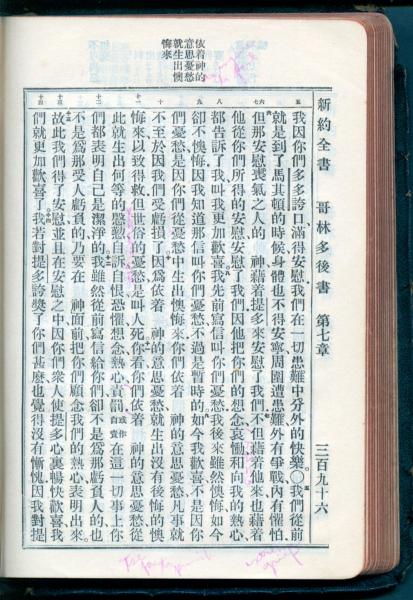 新約全書 哥林多後書 第七章 三百九十六
依着神的
意思憂愁
就生出懊
悔來
五
六七
八
九
十
十一
十二
十三
十四
我因你們多多誇口、滿得安慰、我們在一切患難中分外的快樂。○我們從前
就是到了馬其頓的時候、身體也不得安寧、周圍遭患難、外有爭戰、內有懼怕、
但那安慰喪氣之人的 神、藉着提多來安慰了我們、不但藉着他來、也藉着
他從你們所得的安慰、安慰了我們、因他把你們的想念、哀慟、和向我的熱心、
都告訴了我、叫我更加歡喜、我先前寫信叫你們憂愁、我後來雖然懊悔、如今
卻不懊悔、因我知道那信叫你們憂愁、不過是暫時的、如今我歡喜、不是因你
們憂愁、是因你們從憂愁中生出懊悔來、你們依着 神的意思憂愁、凡事就
不至於因我們受虧損了、因爲依着 神的意思憂愁、就生出沒有後悔的懊
悔來、以致得救、但世俗的憂愁、是叫人死、你看、你們依着 神的意思憂愁、從
此就生出何等的慇懃、自訴、自恨、恐懼、想念、熱心、責罰或作自責在這一切事上你
們都表明自己是潔淨的、我雖然從前寫信給你們、卻不是爲那虧負人的、也
不是爲那受人虧負的、乃要在 神面前把你們顧念我們的熱心表明出來、
故此我們得了安慰、並且在安慰之中、因你們衆人使提多心裏暢快歡喜、我
們就更加歡喜了、我若對提多誇獎了你們甚麼、也覺得沒有慚愧、因我對提